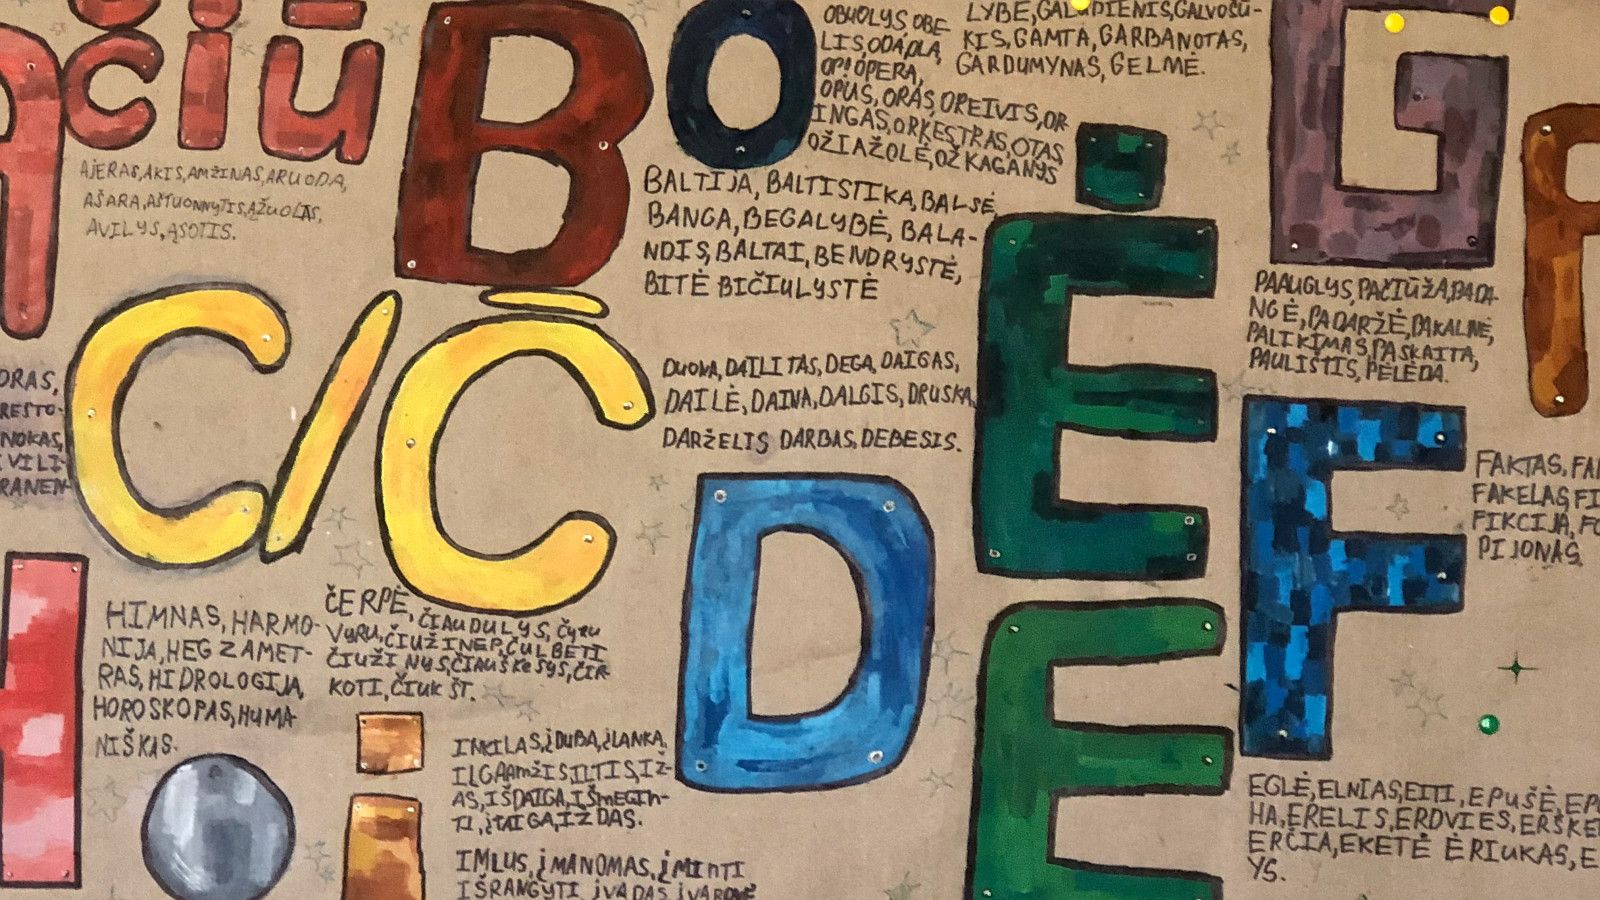 AČIŪ
B
O
G
P
OBUOLYS, OBE-
LIS, ODA, OLA,
OP! OPERA,
OPUS, ORAS, OREIVIS, OR
INGAS, ORKESTRAS, OTAS
OŽIAŽOLĖ, OŽKAGANYS
LYBĖ, GALAPIENIS, GALVOSŪ-
KIS, GAMTA, GARBANOTAS,
GARDUMYNAS, GELMĖ.
AJERAS, AKIS, AMŽINAS, ARUODA,
AŠARA, AŠTUONNYTIS, ĄŽUOLAS,
AVILYS, ĄSOTIS.
BALTIJA, BALTISTIKA, BALSĖ,
BANGA, BEGALYBĖ, BALA-
NDIS, BALTAI, BENDRYSTĖ,
BITĖ BIČIULYSTĖ
Ė
PAAUGLYS, PAČIŪŽA, PADA-
NGĖ, PADARŽĖ, PAKALNĖ,
PALIKIMAS, PASKAITA,
PAULIŠTIS, PELĖDA.
C/Č
DUONA, DAILITAS, DEGA, DAIGAS,
DAILĖ, DAINA, DALGIS, DRUSKA,
DARŽELIS DARBAS, DEBESIS.
D
F
FAKTAS,
FAKELAS,
FIKCIJA,
PIJONAS.
ORAS,
RESTO-
NOKAS,
VILI-
RANEN-
H
HIMNAS, HARMO-
NIJA, HEGZAMET-
RAS, HIDROLOGIJA,
HOROSKOPAS, HUMA-
NIŠKAS.
ČERPĖ, ČIAUDULYS,
ČIUŽINĖP, ČULBĖTI
ČIUŽINYS, ČIAUŠKESYS, ČIR-
KOTI, ČIUKŠT.
i
INKILAS, ĮDUBA, ĮLANKA,
ILGAAMŽIS ILTIS, IŽ-
AS, IŠDAIGA, IŠMĖGIN-
TI, ĮTAIGA, IZDAS.
IMLUS, ĮMANOMAS, ĮMINTI
IŠRANGYTI ĮVADAS
E
EGLĖ, ELNIAS, EITI, EPUŠĖ,
HA, ERELIS, ERDVIES,
ERČIA, EKETĖ ĖRIUKAS,
YS.